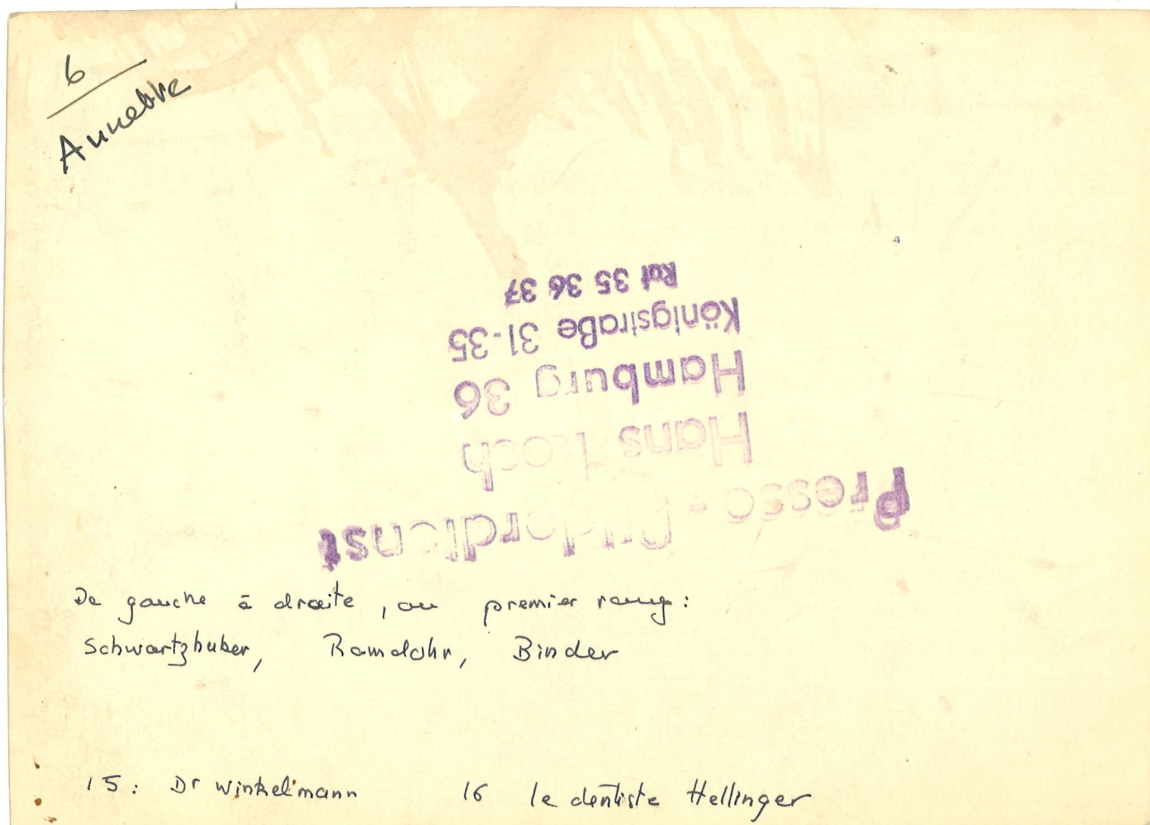 6
Annette
Presse-Bilderdienst
Hans Koch
Hamburg 36
Königstraße 31-35
Ruf 35 36 37
De gauche à droite, au premier rang:
Schwartzhuber, Ramdohr, Binder
15: Dr Winkelmann 16 le dentiste Hellinger